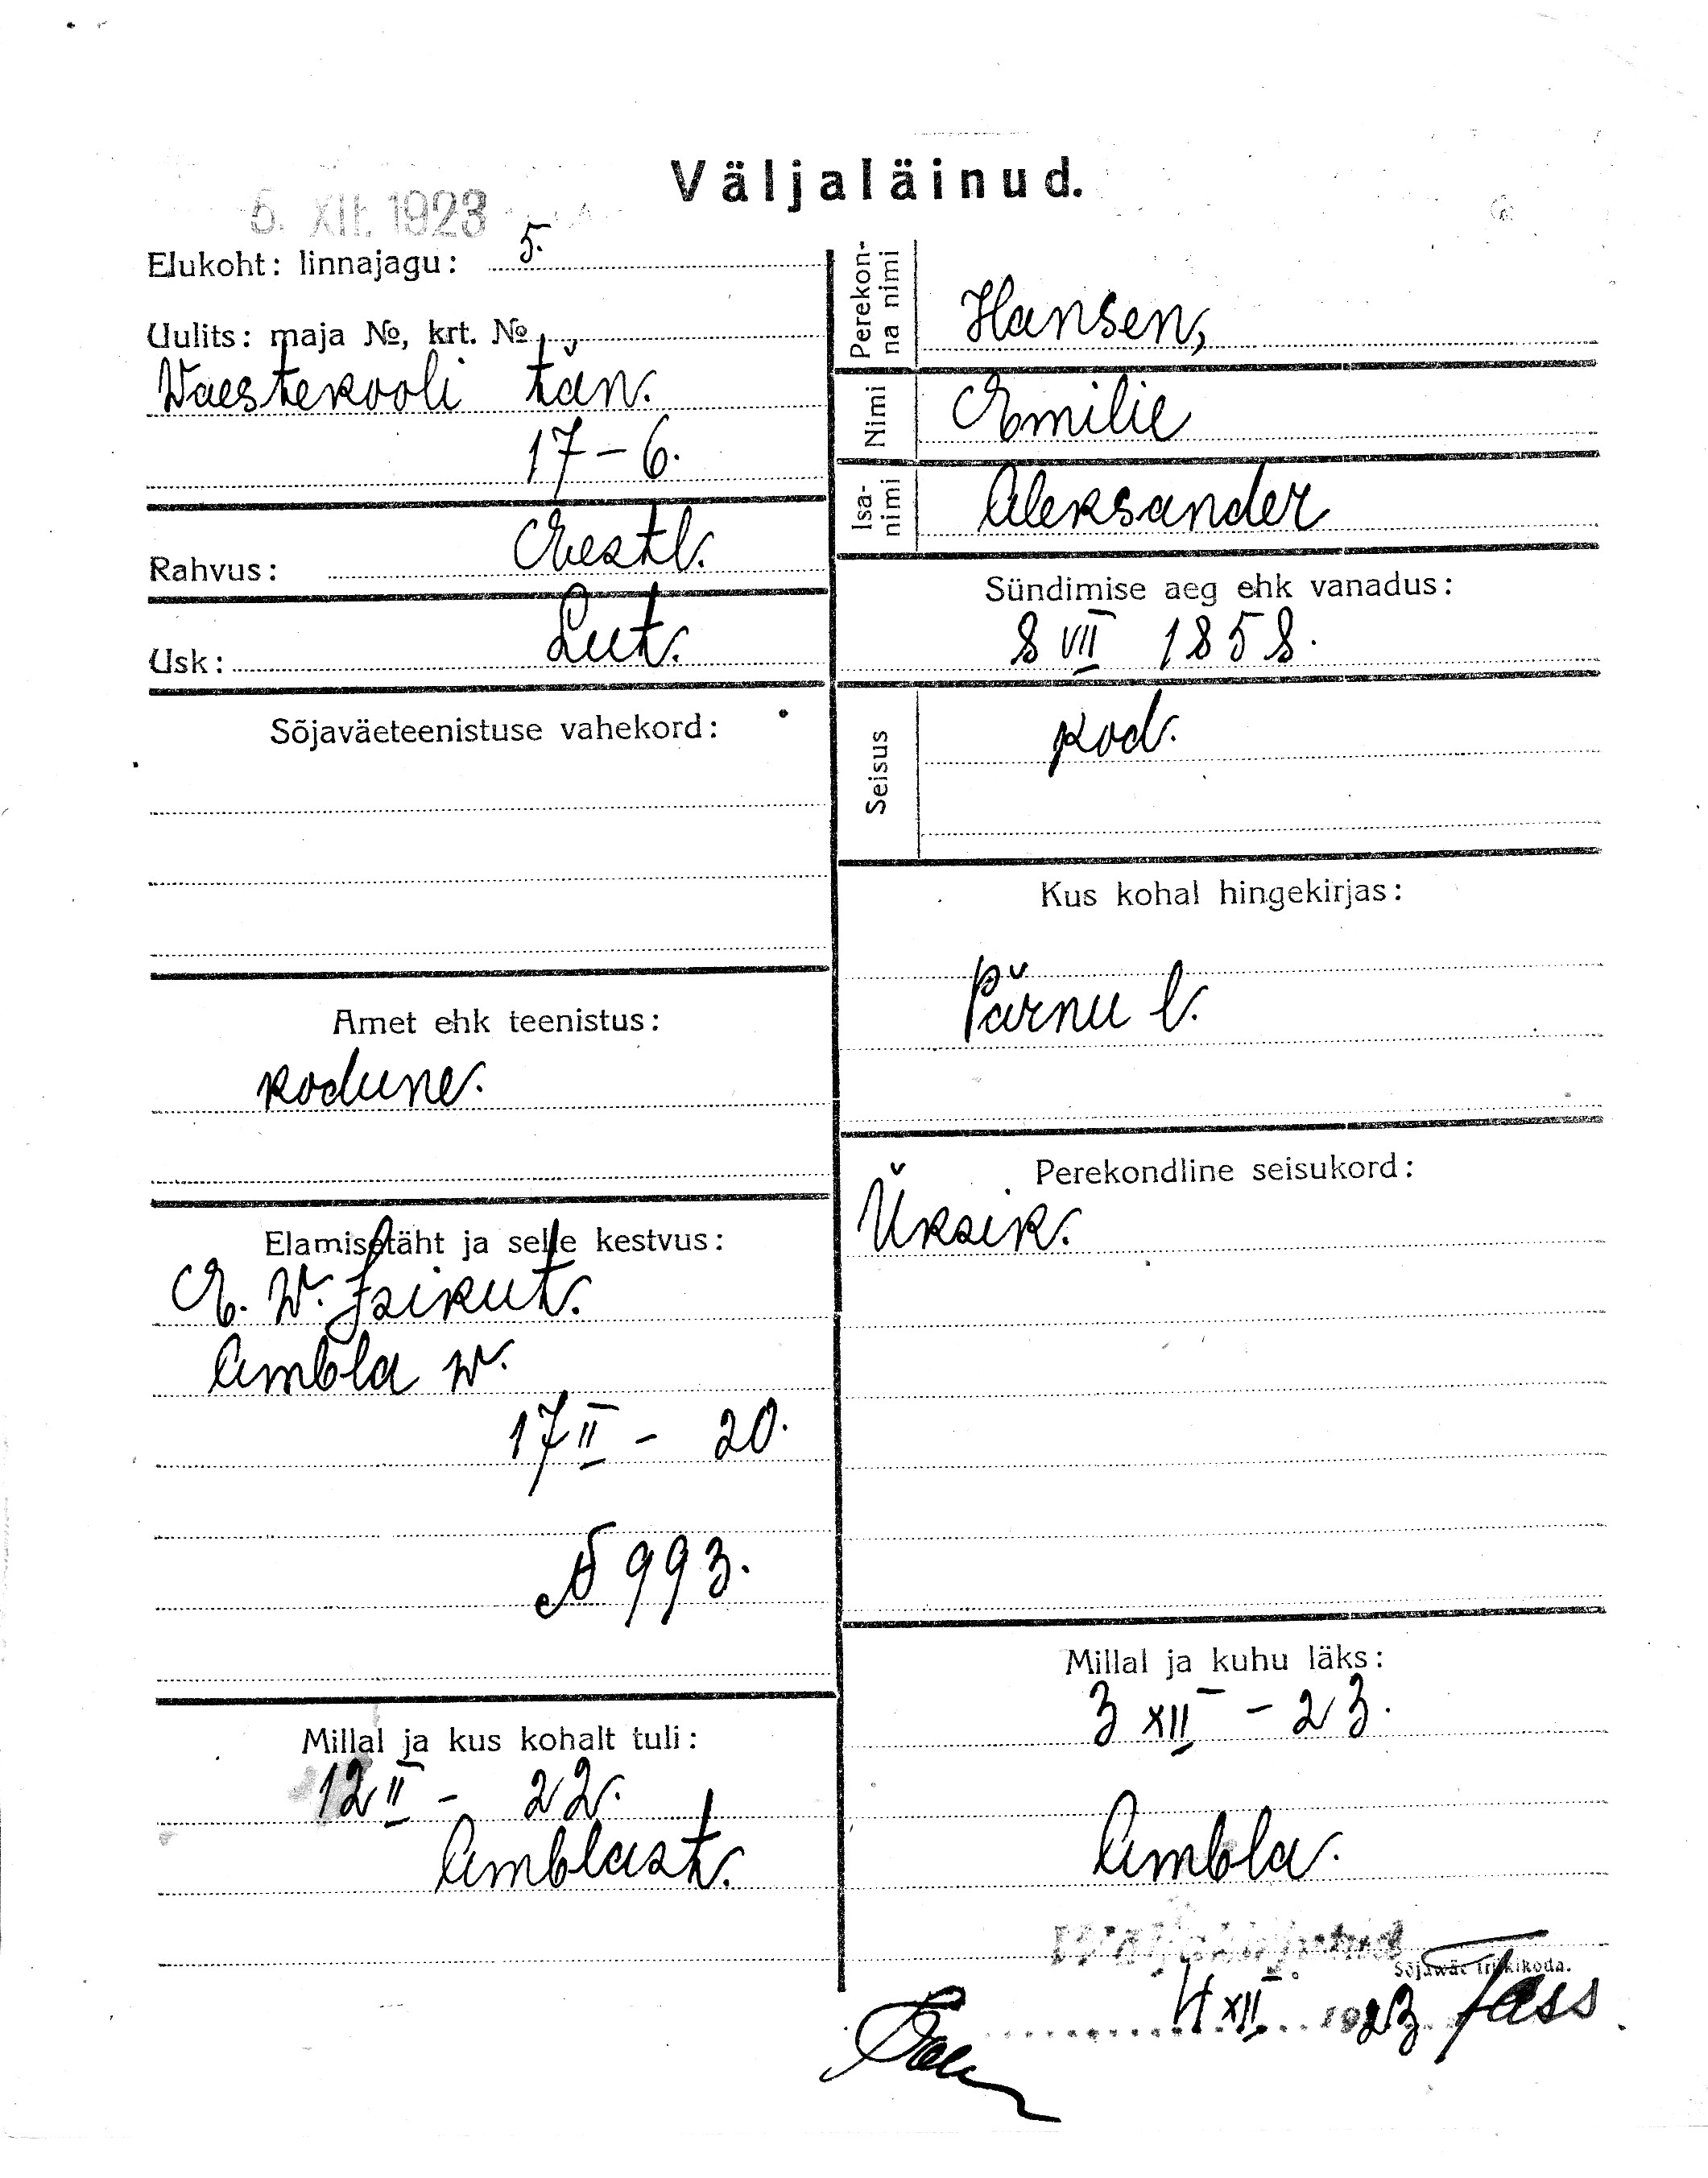 Väljaläinud.
5. XII. 1923
Elukoht: linnajagu: 5.
Uulits: maja №, krt. №
Waestekooli tän.
17–6.
Rahvus: Eestl.
Usk: Lut.
Sõjaväeteenistuse vahekord:
Amet ehk teenistus:
kodune.
Elamisetäht ja selle kestvus:
E. W. Isikut.
Ambla w.
17 II – 20.
№ 993.
Millal ja kus kohalt tuli:
12 II – 22.
Amblast.
Perekonna nimi Hansen,
Nimi Emilie
Isanimi Aleksander
Sündimise aeg ehk vanadus:
8 VII 1858.
Seisus kod.
Kus kohal hingekirjas:
Pärnu l.
Perekondline seisukord:
Üksik.
Millal ja kuhu läks:
3 XII – 23.
Ambla.
Sõjawäe trükikoda.
4 XII. 1923